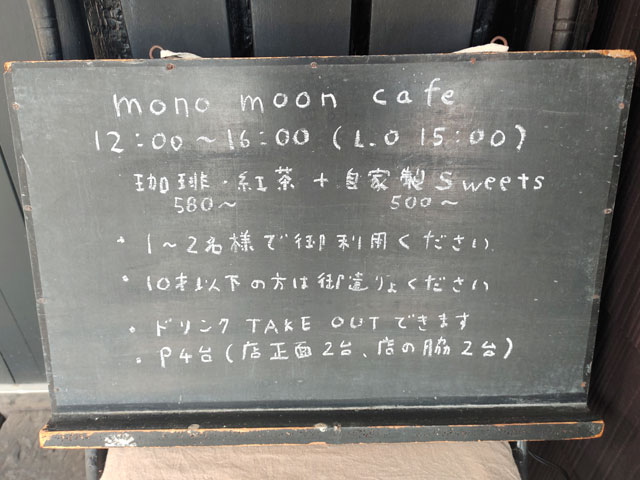 mono moon cafe
12:00～16:00 (L.O 15:00)
珈琲・紅茶＋自家製Sweets
580～ 500～
・1～2名様で御利用ください
・10才以下の方は御遠りょください
・ドリンク TAKE OUTできます
・P4台(店正面2台、店の脇2台)